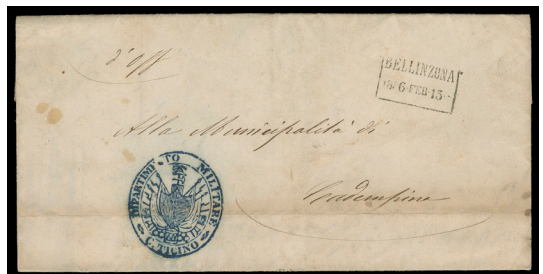 d'off
BELLINZONA
FEB 13
Alla Municipalità di
Cadempino
DIPARTIMENTO MILITARE
C. TICINO